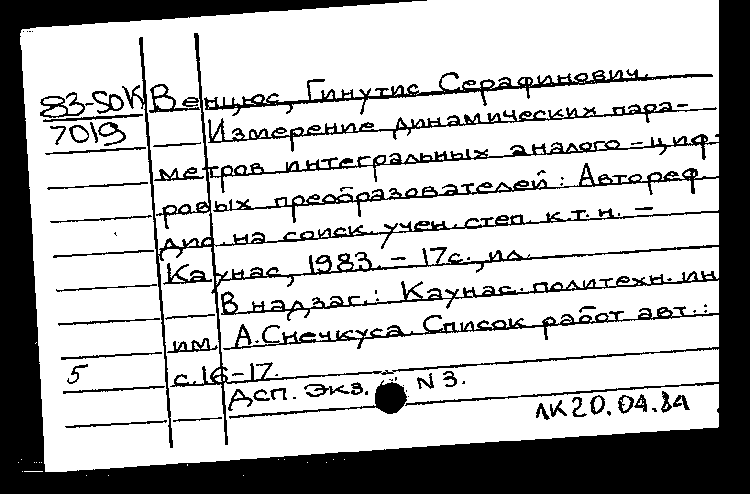 83-SOK Венцюс, Гинутис Серафинович.
7019 Измерение динамических пара-
метров интегральных аналого-циф-
ровых преобразователей: Автореф.
дис. на соиск. учен. степ. к.т.н. –
Каунас, 1983. – 17с., ил.
В надзаг.: Каунас. политехн. ин
им. А.Снечкуса. Список работ авт.:
5 с.16-17.
ДСП. Экз. N 3.
ЛК20.04.84